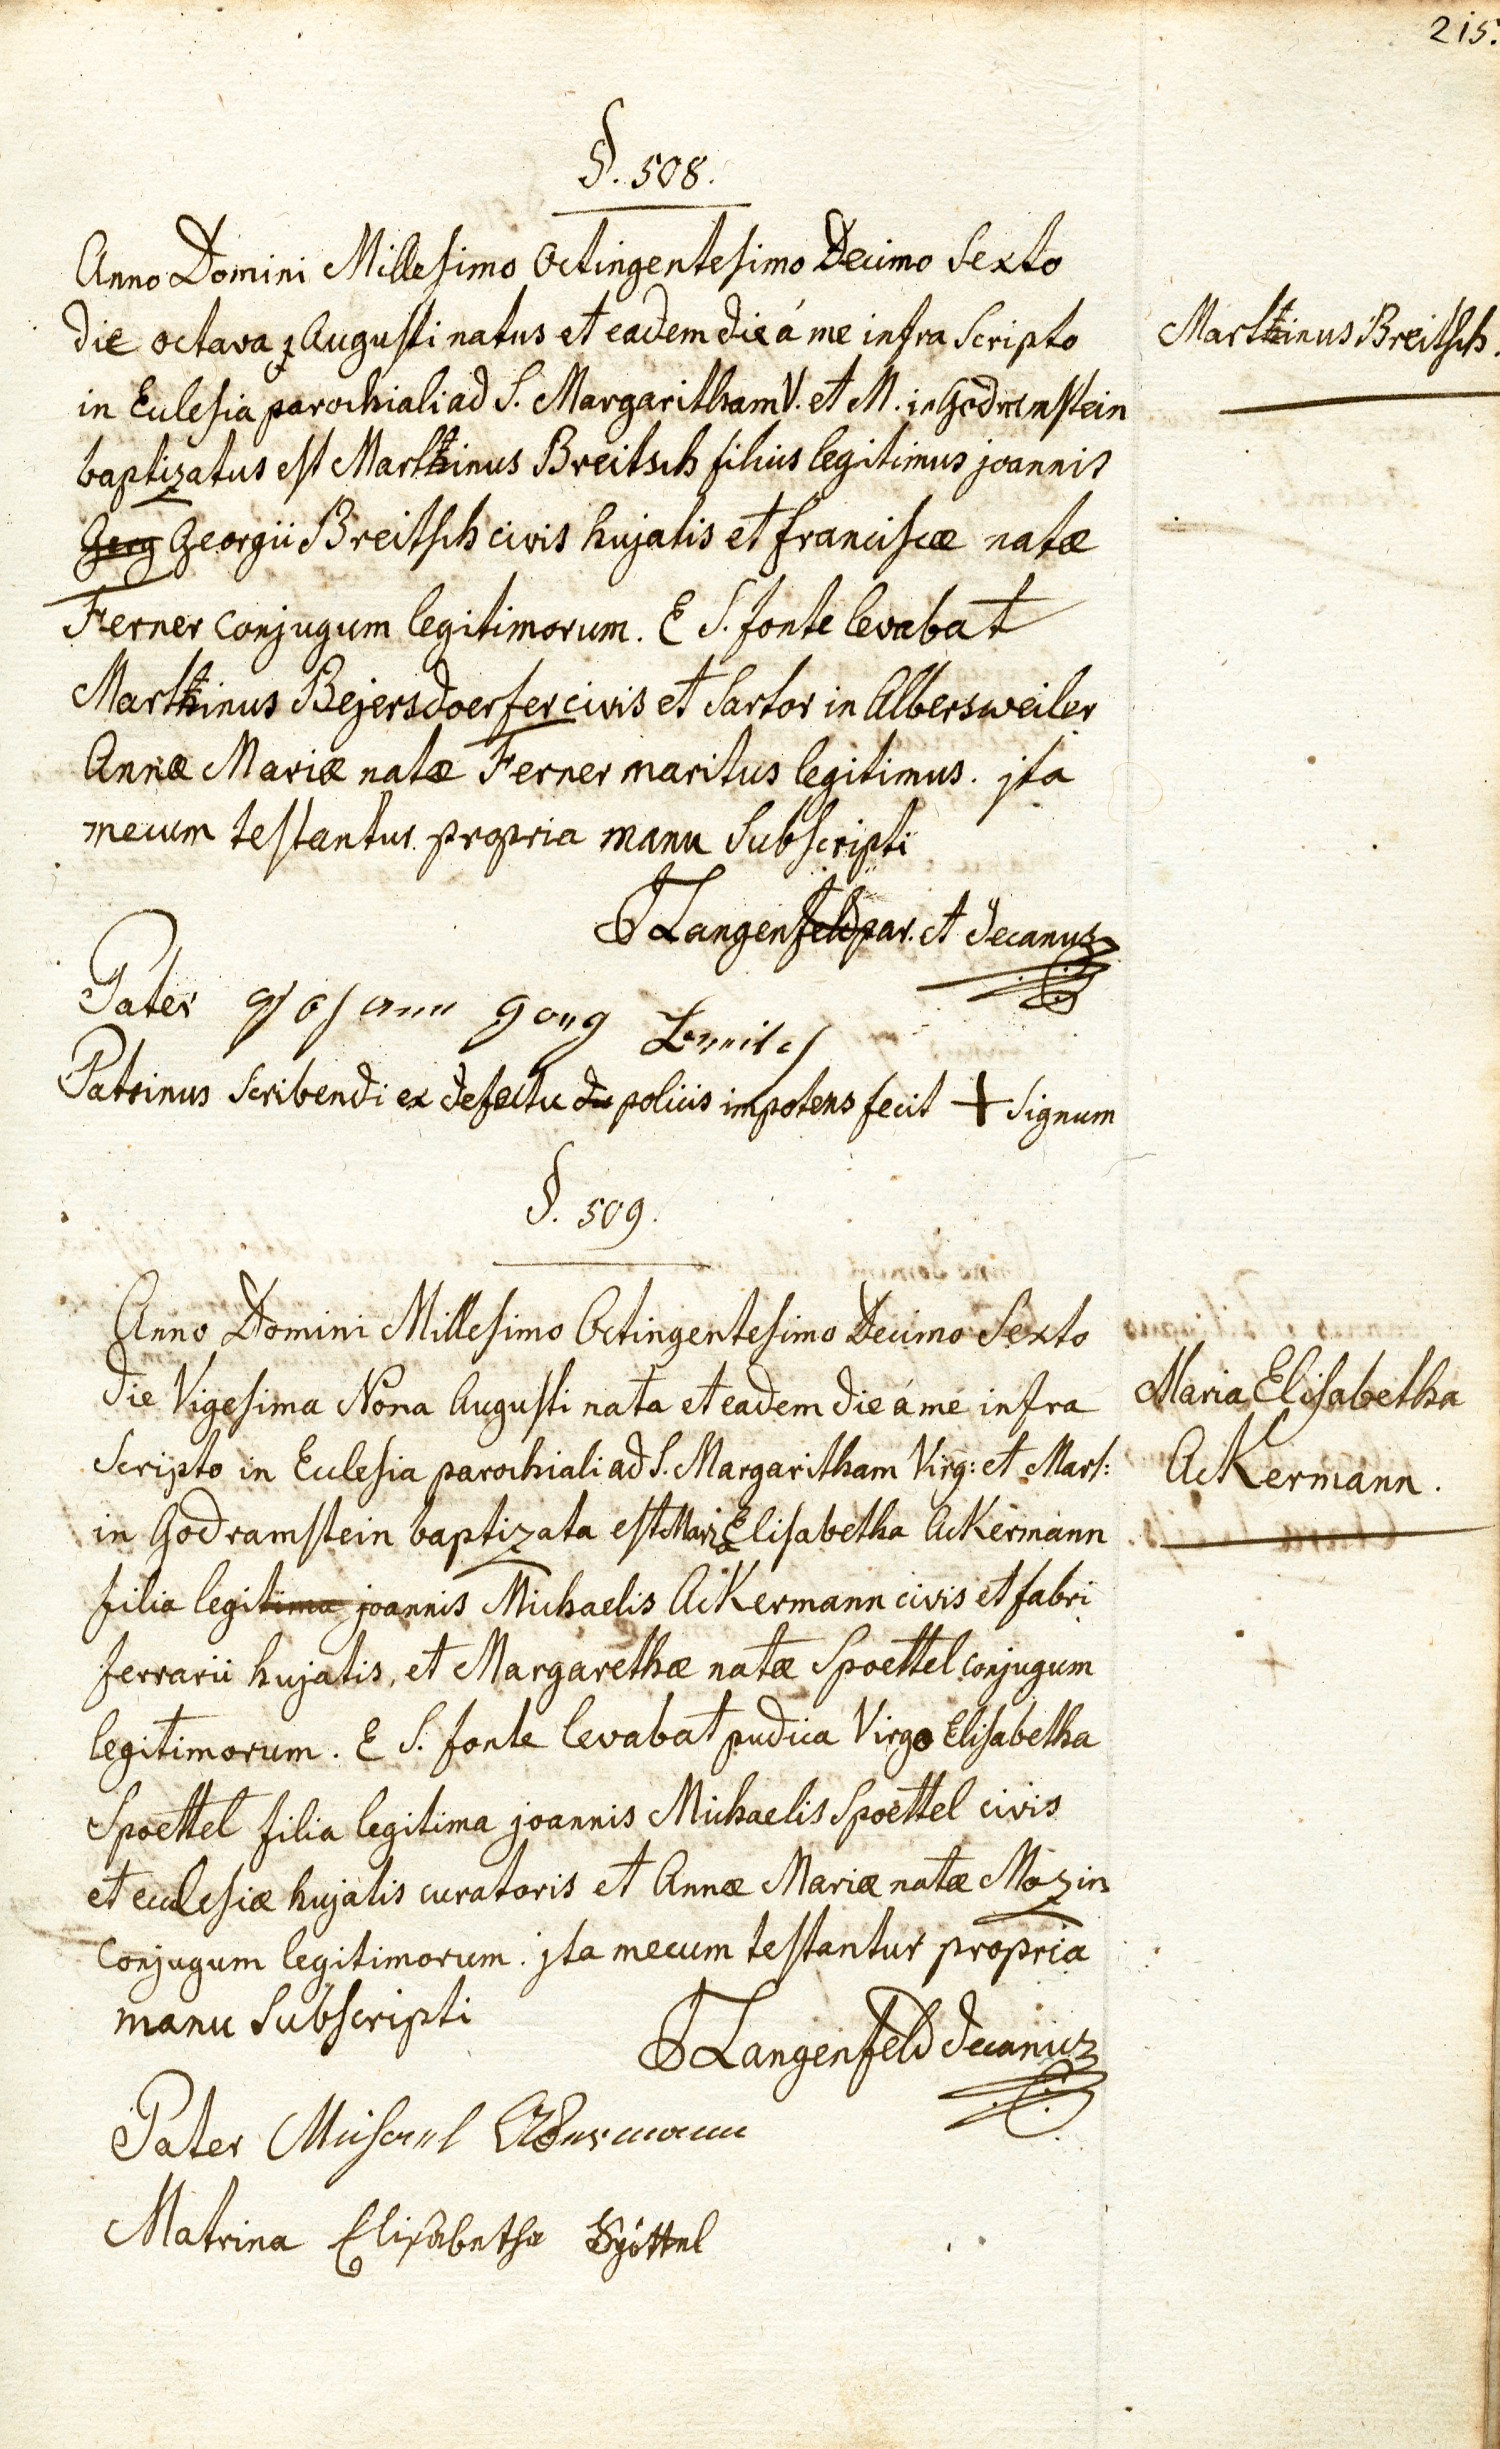 215.
§. 508.
Anno Domini Millesimo Octingentesimo Decimo Sexto
die octava Augusti natus et eadem die á me infra Scripto
Marthinus Breitsch.
in Eclesia parochiali ad S. Margaritham V. et M. in Godramstein
baptizatus est Marthinus Breitsch filius legitimus joannis
Gerg Georgii Breitsch civis hujatis et franciscæ natæ
Ferner conjugum legitimorum. E S. fonte levabat
Marthinus Bejersdoerfer civis et Sartor in Albersweiler
Annæ Mariæ natæ Ferner maritus legitimus. jta
mecum testantur propria manu Subscripti
J Langenfeld par. et decanus
Pater Johann Georg Breitsch
Patrinus scribendi ex defectu du policis impotens fecit + Signum
§. 509.
Anno Domini Millesimo Octingentesimo Decimo Sexto
die Vigesima Nona Augusti nata et eadem die á me infra
Maria Elisabetha
Scripto in Eclesia parochiali ad S. Margaritham Virg: et Mart:
Ackermann.
in Godramstein baptizata est Maria Elisabetha Ackermann
filia legitima joannis Michaelis Ackermann civis et fabri
ferrarii hujatis, et Margarethæ natæ Spoettel conjugum
legitimorum. E S. fonte levabat pudica Virgo Elisabetha
Spoettel filia legitima joannis Michaelis Spoettel civis
et ecclesiæ hujatis curatoris et Annæ Mariæ natæ Mozin
conjugum legitimorum. jta mecum testantur propria
manu Subscripti
J Langenfeld decanus
Pater Michael Ackermann
Matrina Elisabetha Spöttel